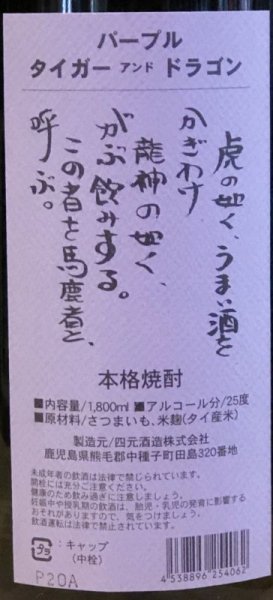 パープル
タイガー アンド ドラゴン
虎の如く、うまい酒を
かぎわけ
龍神の如く、
がぶ飲みする。
この者を馬鹿者と、
呼ぶ。
本格焼酎
■内容量/1,800ml ■アルコール分/25度
■原材料/さつまいも、米麹(タイ産米)
製造元/四元酒造株式会社
鹿児島県熊毛郡中種子町田島320番地
未成年者の飲酒は法律で禁じられています。
開栓には充分ご注意ください。
健康のため飲み過ぎに注意しましょう。
妊娠中や授乳期の飲酒は、胎児・乳児の発育に影響する
おそれがありますので、気をつけましょう。
飲酒運転は法律で禁じられています。
タラ :キャップ
(中栓)
4538896254062
P20A